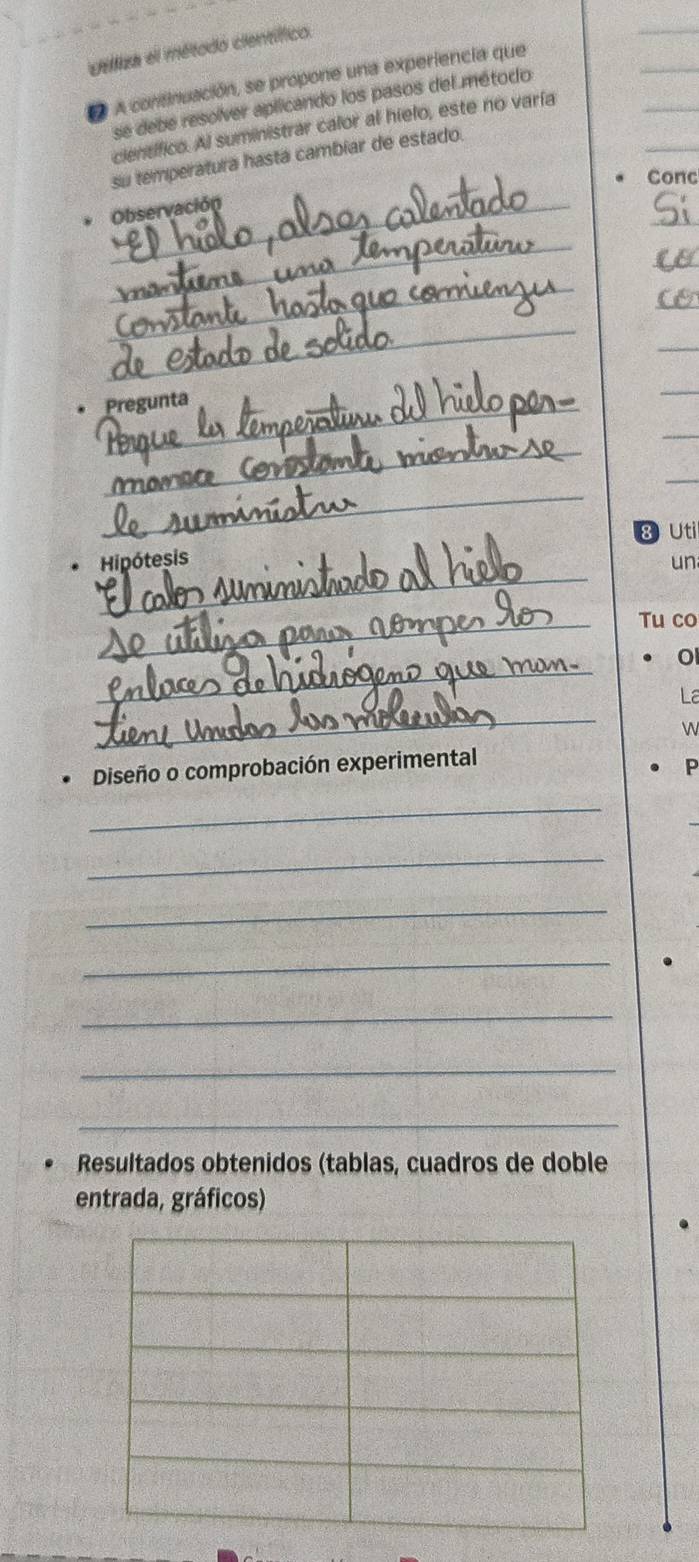 Utiliza el método científico.
7 A continuación, se propone una experiencia que
se debe resolver aplicando los pasos del método
científico. Al suministrar calor al hielo, este no varía
su temperatura hasta cambiar de estado.
• Observación
El hielo, al ser calentado
mantiene una temperatura
constante hasta que comienza
de estado de solido.
• Pregunta
Porque la temperatura del hielo per-
manece constante mientras se
le suministra
• Hipótesis
El calor suministrado al hielo
se utiliza para romper los
enlaces de hidrógeno que man-
tiene unidas las moleculas
• Diseño o comprobación experimental
• Resultados obtenidos (tablas, cuadros de doble
entrada, gráficos)
• Conc
Si
ce
ce
8 Uti
una
Tu co
• O
La
w
• P